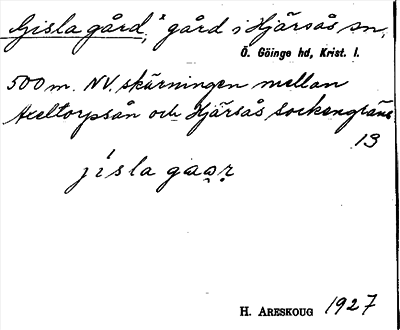 Gisla gård, × gård i Hjärsås sn,
Ö. Göinge hd, Krist. l.
500 m. NV. skärningen mellan
Axeltorpsån och Hjärsås sockengräns
13
jísla gaar
H. ARESKOUG 1927